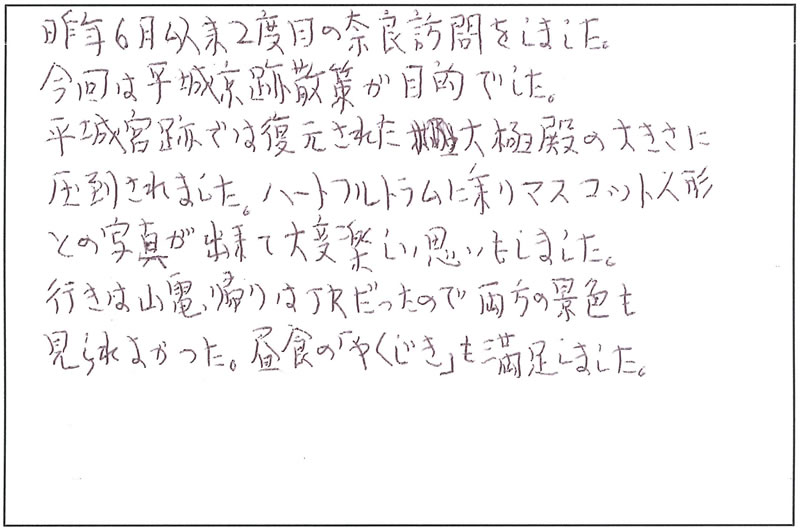 昨年6月以来2度目の奈良訪問をしました。
今回は平城京跡散策が目的でした。
平城宮跡では復元された大極殿の大きさに
圧到されました。ハートフルトラムに乗りマスコット人形
との写真が出来て大変楽しい思いもしました。
行きは山電、帰りはJRだったので両方の景色も
見られよかった。昼食の「やくじき」も満足しました。